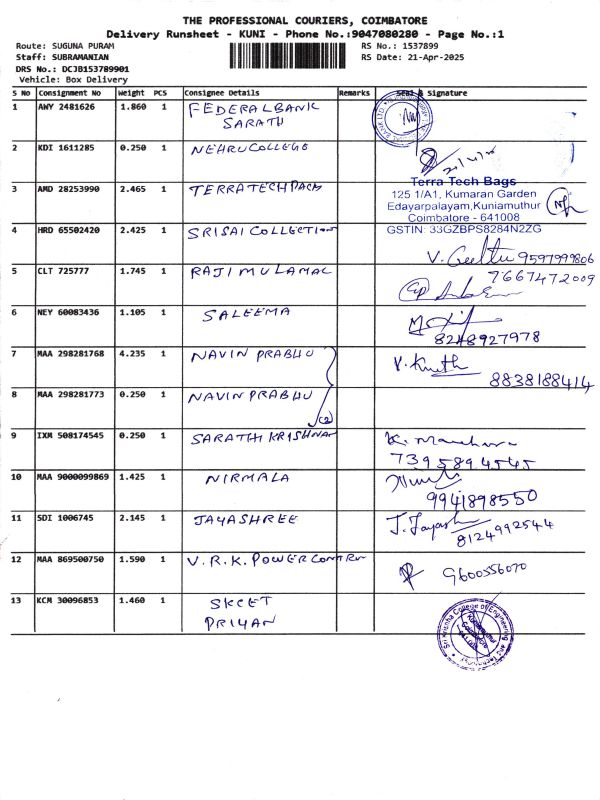 THE PROFESSIONAL COURIERS, COIMBATORE
Delivery Runsheet - KUNI - Phone No.:9047080280 - Page No.:1
Route: SUGUNA PURAM RS No.: 1537899
Staff: SUBRAMANIAN RS Date: 21-Apr-2025
DRS No.: DCJB153789901
Vehicle: Box Delivery
S No Consignment No Weight PCS Consignee Details Remarks Seal & Signature
1 AWY 2481626 1.860 1 FEDERAL BANK
SARATH
2 KDI 1611285 0.250 1 NEHRU COLLEGE
3 AMD 28253990 2.465 1 TERRATECH PACK
Terra Tech Bags
125 1/A1, Kumaran Garden
Edayarpalayam,Kuniamuthur
Coimbatore - 641008
GSTIN: 33GZBPS8284N2ZG
4 HRD 65502420 2.425 1 SRISAI COLLECTION
V. Geethu 9597999806
5 CLT 725777 1.745 1 RAJI MULAMAL
7667472009
6 NEY 60083436 1.105 1 SALEEMA
8248927978
7 MAA 298281768 4.235 1 NAVIN PRABHU
8838188414
8 MAA 298281773 0.250 1 NAVIN PRABHU
(2)
9 IXM 508174545 0.250 1 SARATHI KRISHNAN
7395894545
10 MAA 9000099869 1.425 1 NIRMALA
9941898550
11 SDI 1006745 2.145 1 JAYASHREE J. Jayash
8124992544
12 MAA 869500750 1.590 1 V.R.K. POWER CONTRO
9600556070
13 KCM 30096853 1.460 1 SKCET
PRIYAN
Sri Krishna College of Engineering and Technology